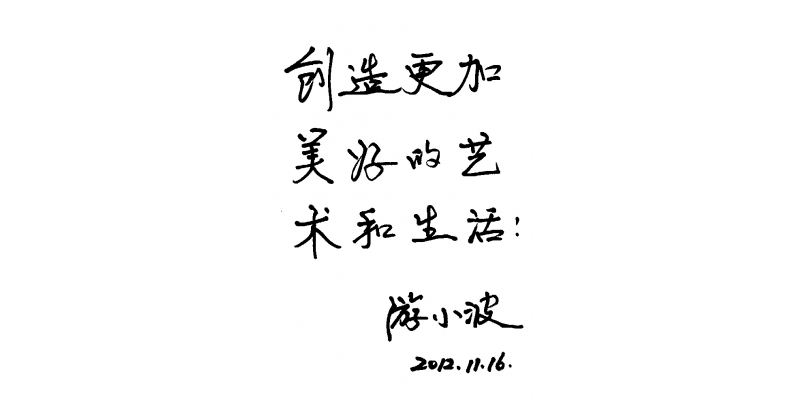 创造更加
美好的艺
术和生活!
游小波
2012.11.16.